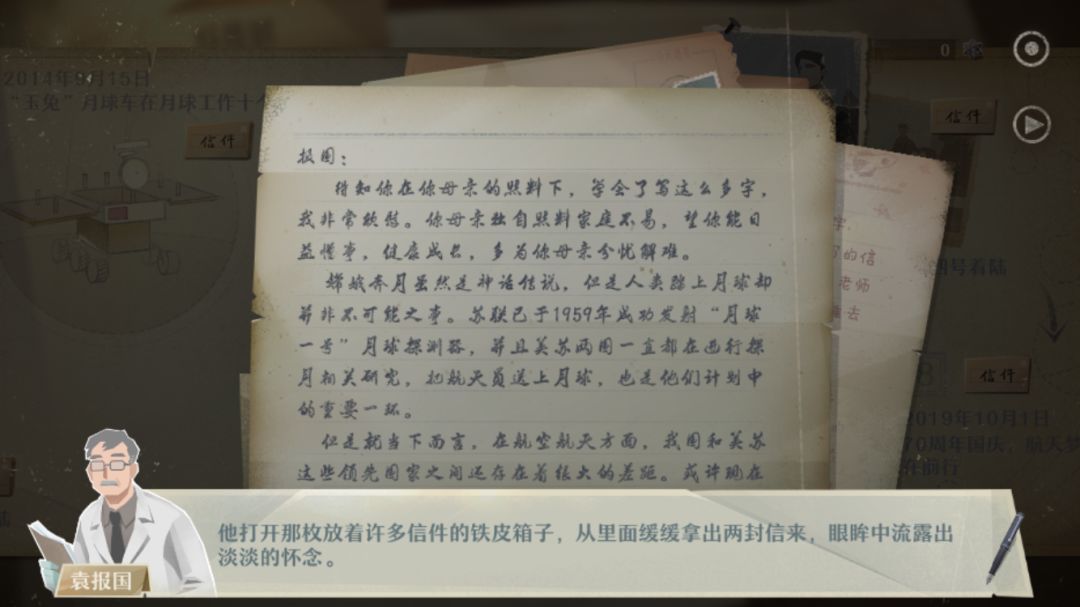 2014年9月15日
“玉兔”月球车在月球工作十个
信件
0
信件
报国：
得知你在你母亲的照料下，学会了写这么多字，
我非常欣慰。你母亲独自照料家庭不易，望你能日
益懂事，健康成长，多为你母亲分忧解难。
嫦娥奔月虽然是神话传说，但是人类踏上月球却
并非不可能之事。苏联已于1959年成功发射“月球
一号”月球探测器，并且美苏两国一直都在进行探
月相关研究，把航天员送上月球，也是他们计划中
的重要一环。
但是就当下而言，在航空航天方面，我国和美苏
这些领先国家之间还存在着很大的差距。或许现在
字
的信
老师
去
号着陆
信件
2019年10月1日
70周年国庆，航天梦
在前行
他打开那枚放着许多信件的铁皮箱子，从里面缓缓拿出两封信来，眼眸中流露出
淡淡的怀念。
袁报国